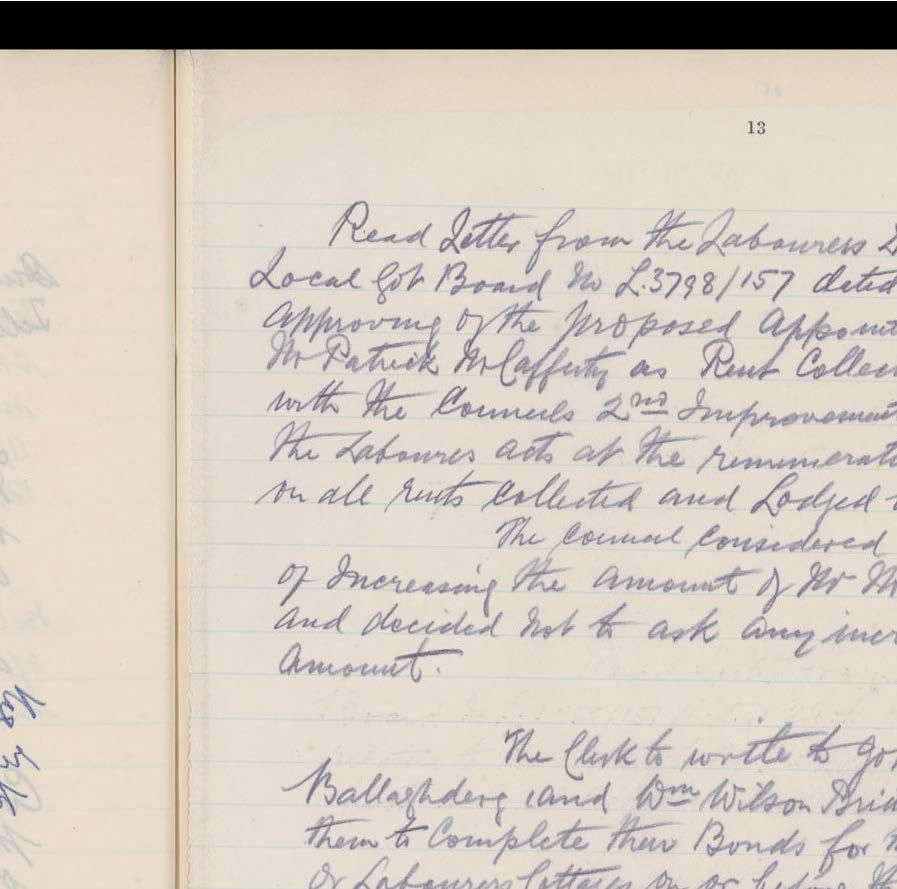 13
Read Letter from the Labourers
Local Got Board No L.3798/157 dated
approving of the proposed Appoint
Mr Patrick McCafferty as Rent Collec
with the Councils 2nd Improvement
the Labourers acts at the remunerat
on all rents collected and Lodged
The Council considered
of Increasing the amount of Mr
and decided not to ask any incr
amount.
The Clerk to write to
Ballaghderg and Wm Wilson
them to Complete their Bonds for
or Labourers Cottages on or before